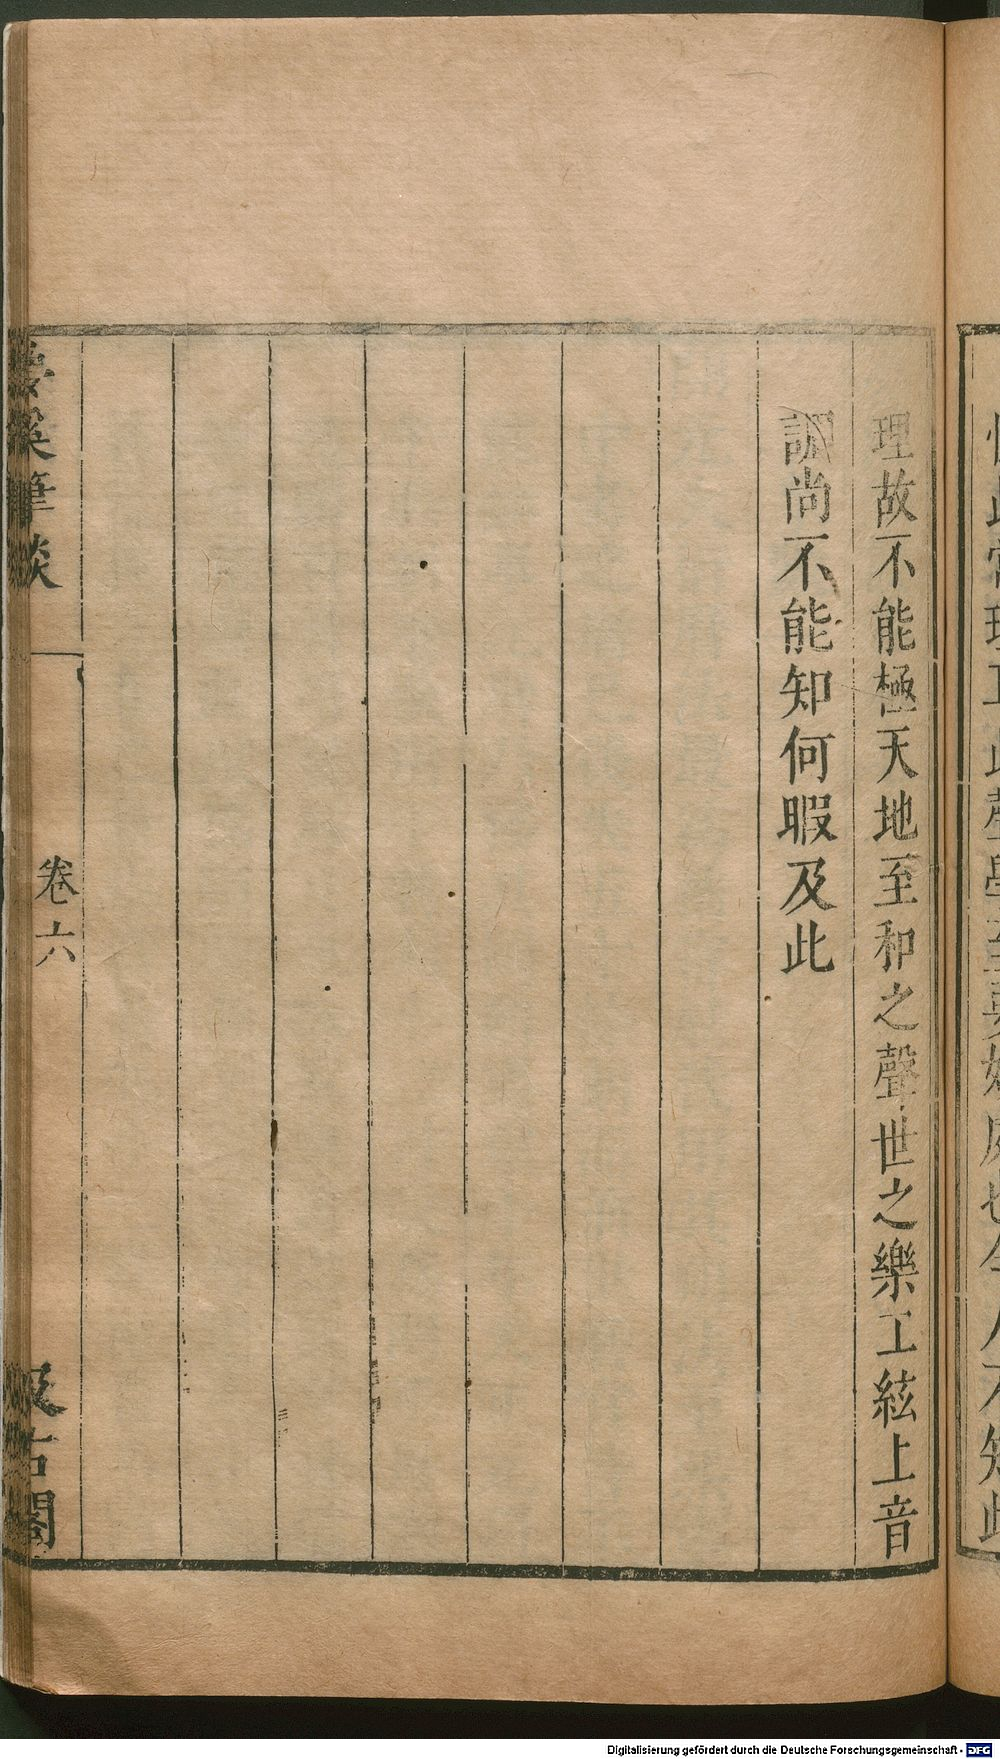 怪此常理耳此聲學至要妙處也今人不知此
理故不能極天地至和之聲世之樂工絃上音
調尚不能知何暇及此
夢溪筆談
卷六
汲古閣
Digitalisierung gefördert durch die Deutsche Forschungsgemeinschaft - DFG